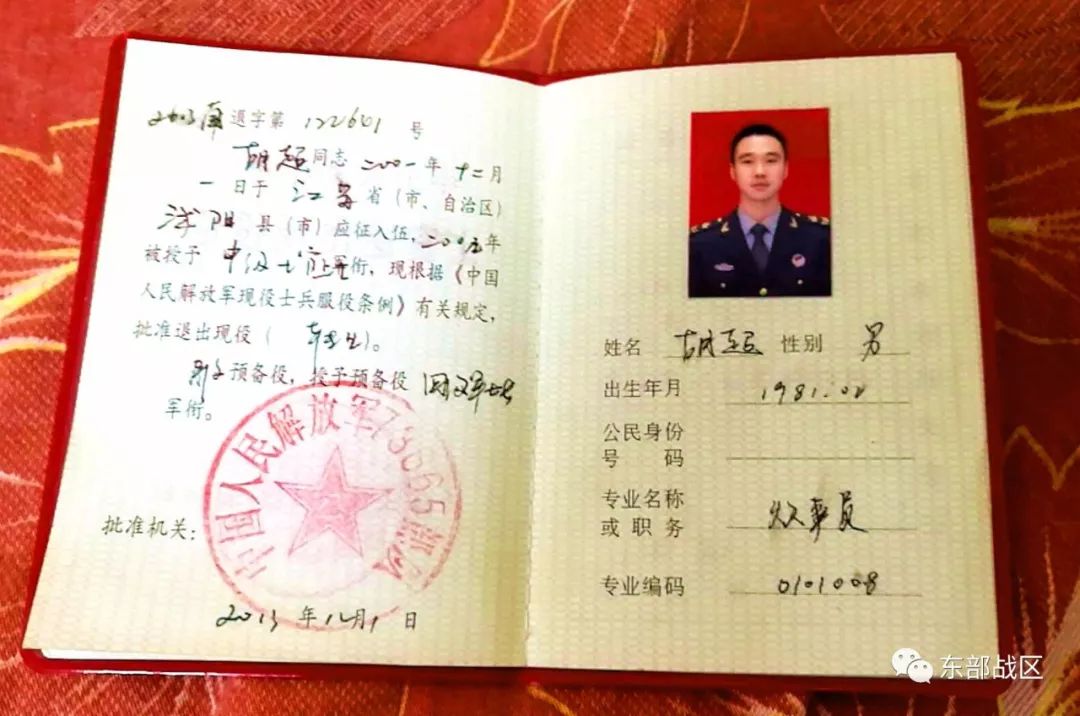 2013 退字第 122601 号
胡超同志二〇〇一年十二月
一日于江苏省(市、自治区)
溧阳县(市)应征入伍,二〇〇 年
被授予中级士官 军衔,现根据《中国
人民解放军现役士兵服役条例》有关规定,
批准退出现役( )。
预备役,授予预备役
军衔。
中国人民解放军73065部队
批准机关:
2013年12月1日
姓名 胡超 性别 男
出生年月 1981.02
公民身份
号码
专业名称 炊事员
或职务
专业编码 0101008
东部战区